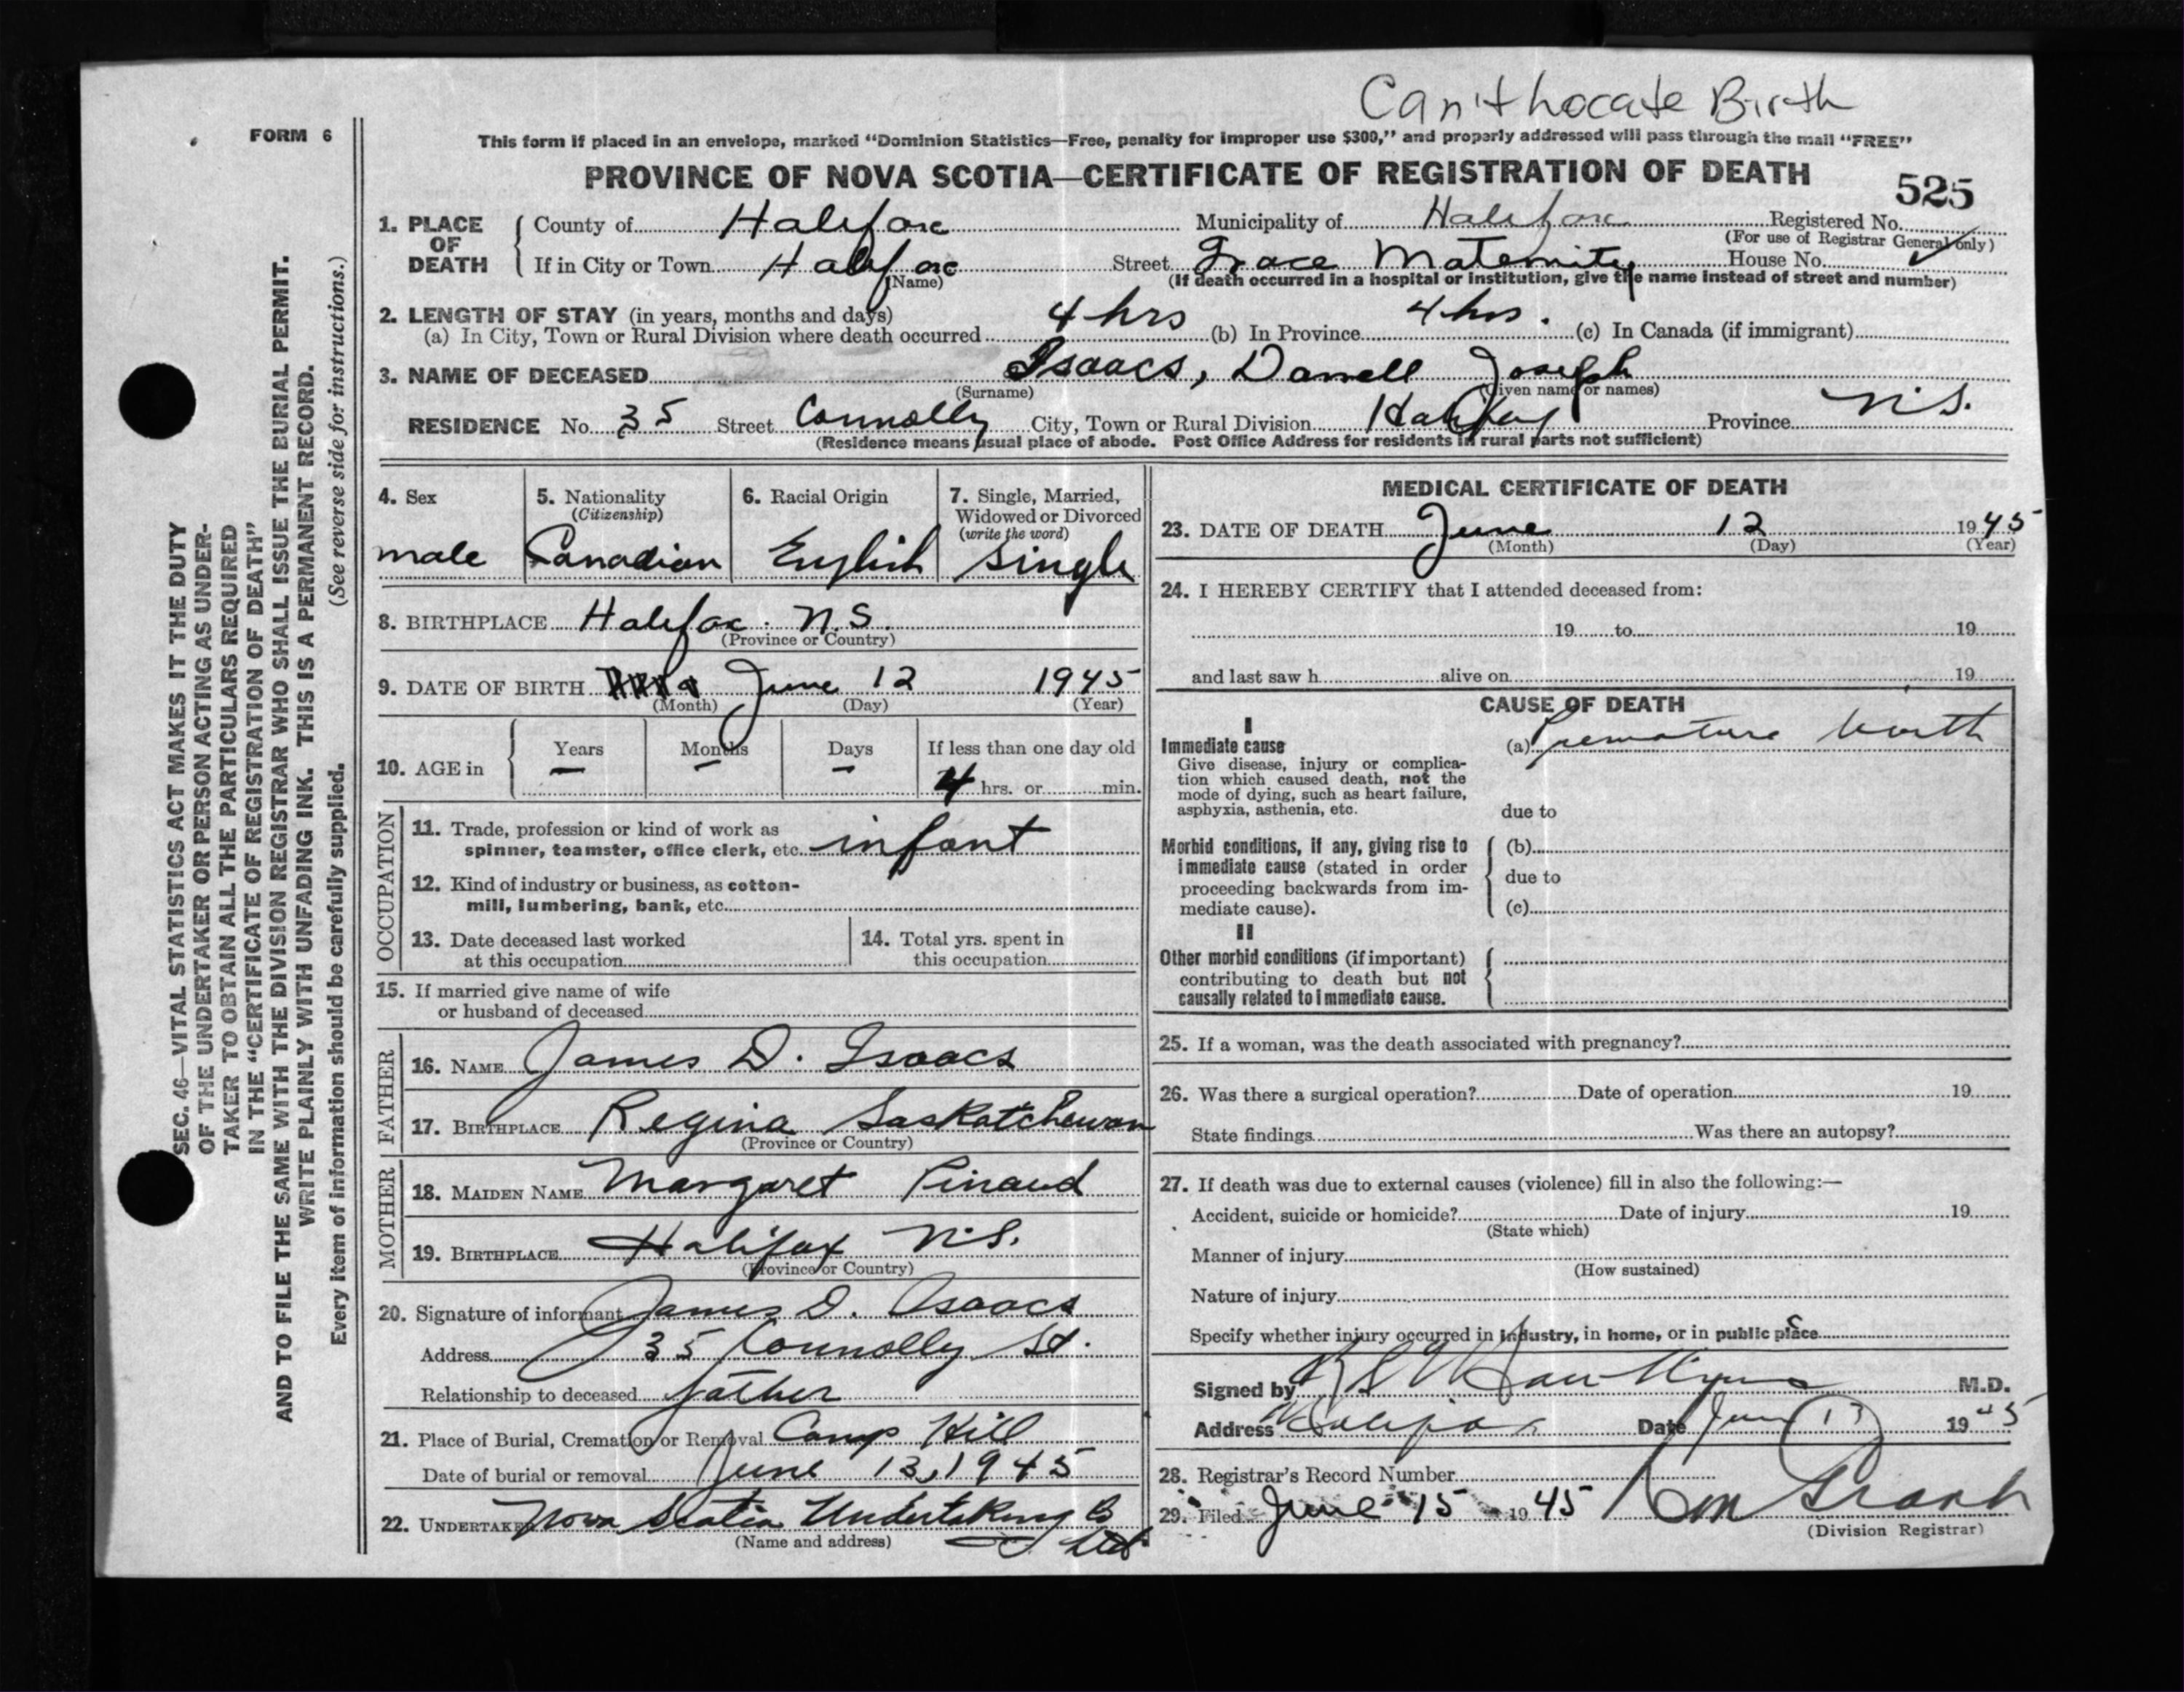 Can't Locate Birth
FORM 6
This form if placed in an envelope, marked “Dominion Statistics—Free, penalty for improper use $300,” and properly addressed will pass through the mail “FREE”
PROVINCE OF NOVA SCOTIA—CERTIFICATE OF REGISTRATION OF DEATH
525
1. PLACE OF DEATH
County of Halifax Municipality of Halifax Registered No.
(For use of Registrar General only)
If in City or Town Halifax Street Grace Maternity House No.
(Name) (If death occurred in a hospital or institution, give the name instead of street and number)
2. LENGTH OF STAY (in years, months and days)
(a) In City, Town or Rural Division where death occurred 4 hrs (b) In Province 4 hrs. (c) In Canada (if immigrant)
3. NAME OF DECEASED Isaacs, Darrell Joseph
(Surname) (Given name or names)
RESIDENCE No. 35 Street Connolly City, Town or Rural Division Halifax Province N.S.
(Residence means usual place of abode. Post Office Address for residents in rural parts not sufficient)
4. Sex
male
5. Nationality
(Citizenship)
Canadian
6. Racial Origin
English
7. Single, Married,
Widowed or Divorced
(write the word)
Single
8. BIRTHPLACE Halifax. N.S.
(Province or Country)
9. DATE OF BIRTH June 12 1945
(Month) (Day) (Year)
10. AGE in
Years Months Days If less than one day old
— — — 4 hrs. or min.
OCCUPATION
11. Trade, profession or kind of work as
spinner, teamster, office clerk, etc. infant
12. Kind of industry or business, as cotton-
mill, lumbering, bank, etc.
13. Date deceased last worked
at this occupation
14. Total yrs. spent in
this occupation
15. If married give name of wife
or husband of deceased
FATHER
16. NAME James D. Isaacs
17. BIRTHPLACE Regina Saskatchewan
(Province or Country)
MOTHER
18. MAIDEN NAME Margaret Pinaud
19. BIRTHPLACE Halifax N.S.
(Province or Country)
20. Signature of informant James D. Isaacs
Address 35 Connolly St.
Relationship to deceased father
21. Place of Burial, Cremation or Removal Camp Hill
Date of burial or removal June 13, 1945
22. UNDERTAKER Nova Scotia Undertaking Co
Ltd
(Name and address)
MEDICAL CERTIFICATE OF DEATH
23. DATE OF DEATH June 12 1945
(Month) (Day) (Year)
24. I HEREBY CERTIFY that I attended deceased from:
19 to 19
and last saw h alive on 19
CAUSE OF DEATH
I
Immediate cause
Give disease, injury or complica-
tion which caused death, not the
mode of dying, such as heart failure,
asphyxia, asthenia, etc.
(a) Premature birth
due to
Morbid conditions, if any, giving rise to
immediate cause (stated in order
proceeding backwards from im-
mediate cause).
(b)
due to
(c)
II
Other morbid conditions (if important)
contributing to death but not
causally related to immediate cause.
25. If a woman, was the death associated with pregnancy?
26. Was there a surgical operation? Date of operation 19
State findings Was there an autopsy?
27. If death was due to external causes (violence) fill in also the following:—
Accident, suicide or homicide? Date of injury 19
(State which)
Manner of injury
(How sustained)
Nature of injury
Specify whether injury occurred in industry, in home, or in public place
Signed by M.D.
Address Halifax Date June 13 1945
28. Registrar's Record Number
29. Filed June 15 1945
(Division Registrar)
SEC. 46—VITAL STATISTICS ACT MAKES IT THE DUTY
OF THE UNDERTAKER OR PERSON ACTING AS UNDER-
TAKER TO OBTAIN ALL THE PARTICULARS REQUIRED
IN THE “CERTIFICATE OF REGISTRATION OF DEATH”
AND TO FILE THE SAME WITH THE DIVISION REGISTRAR WHO SHALL ISSUE THE BURIAL PERMIT.
WRITE PLAINLY WITH UNFADING INK. THIS IS A PERMANENT RECORD.
Every item of information should be carefully supplied. (See reverse side for instructions.)